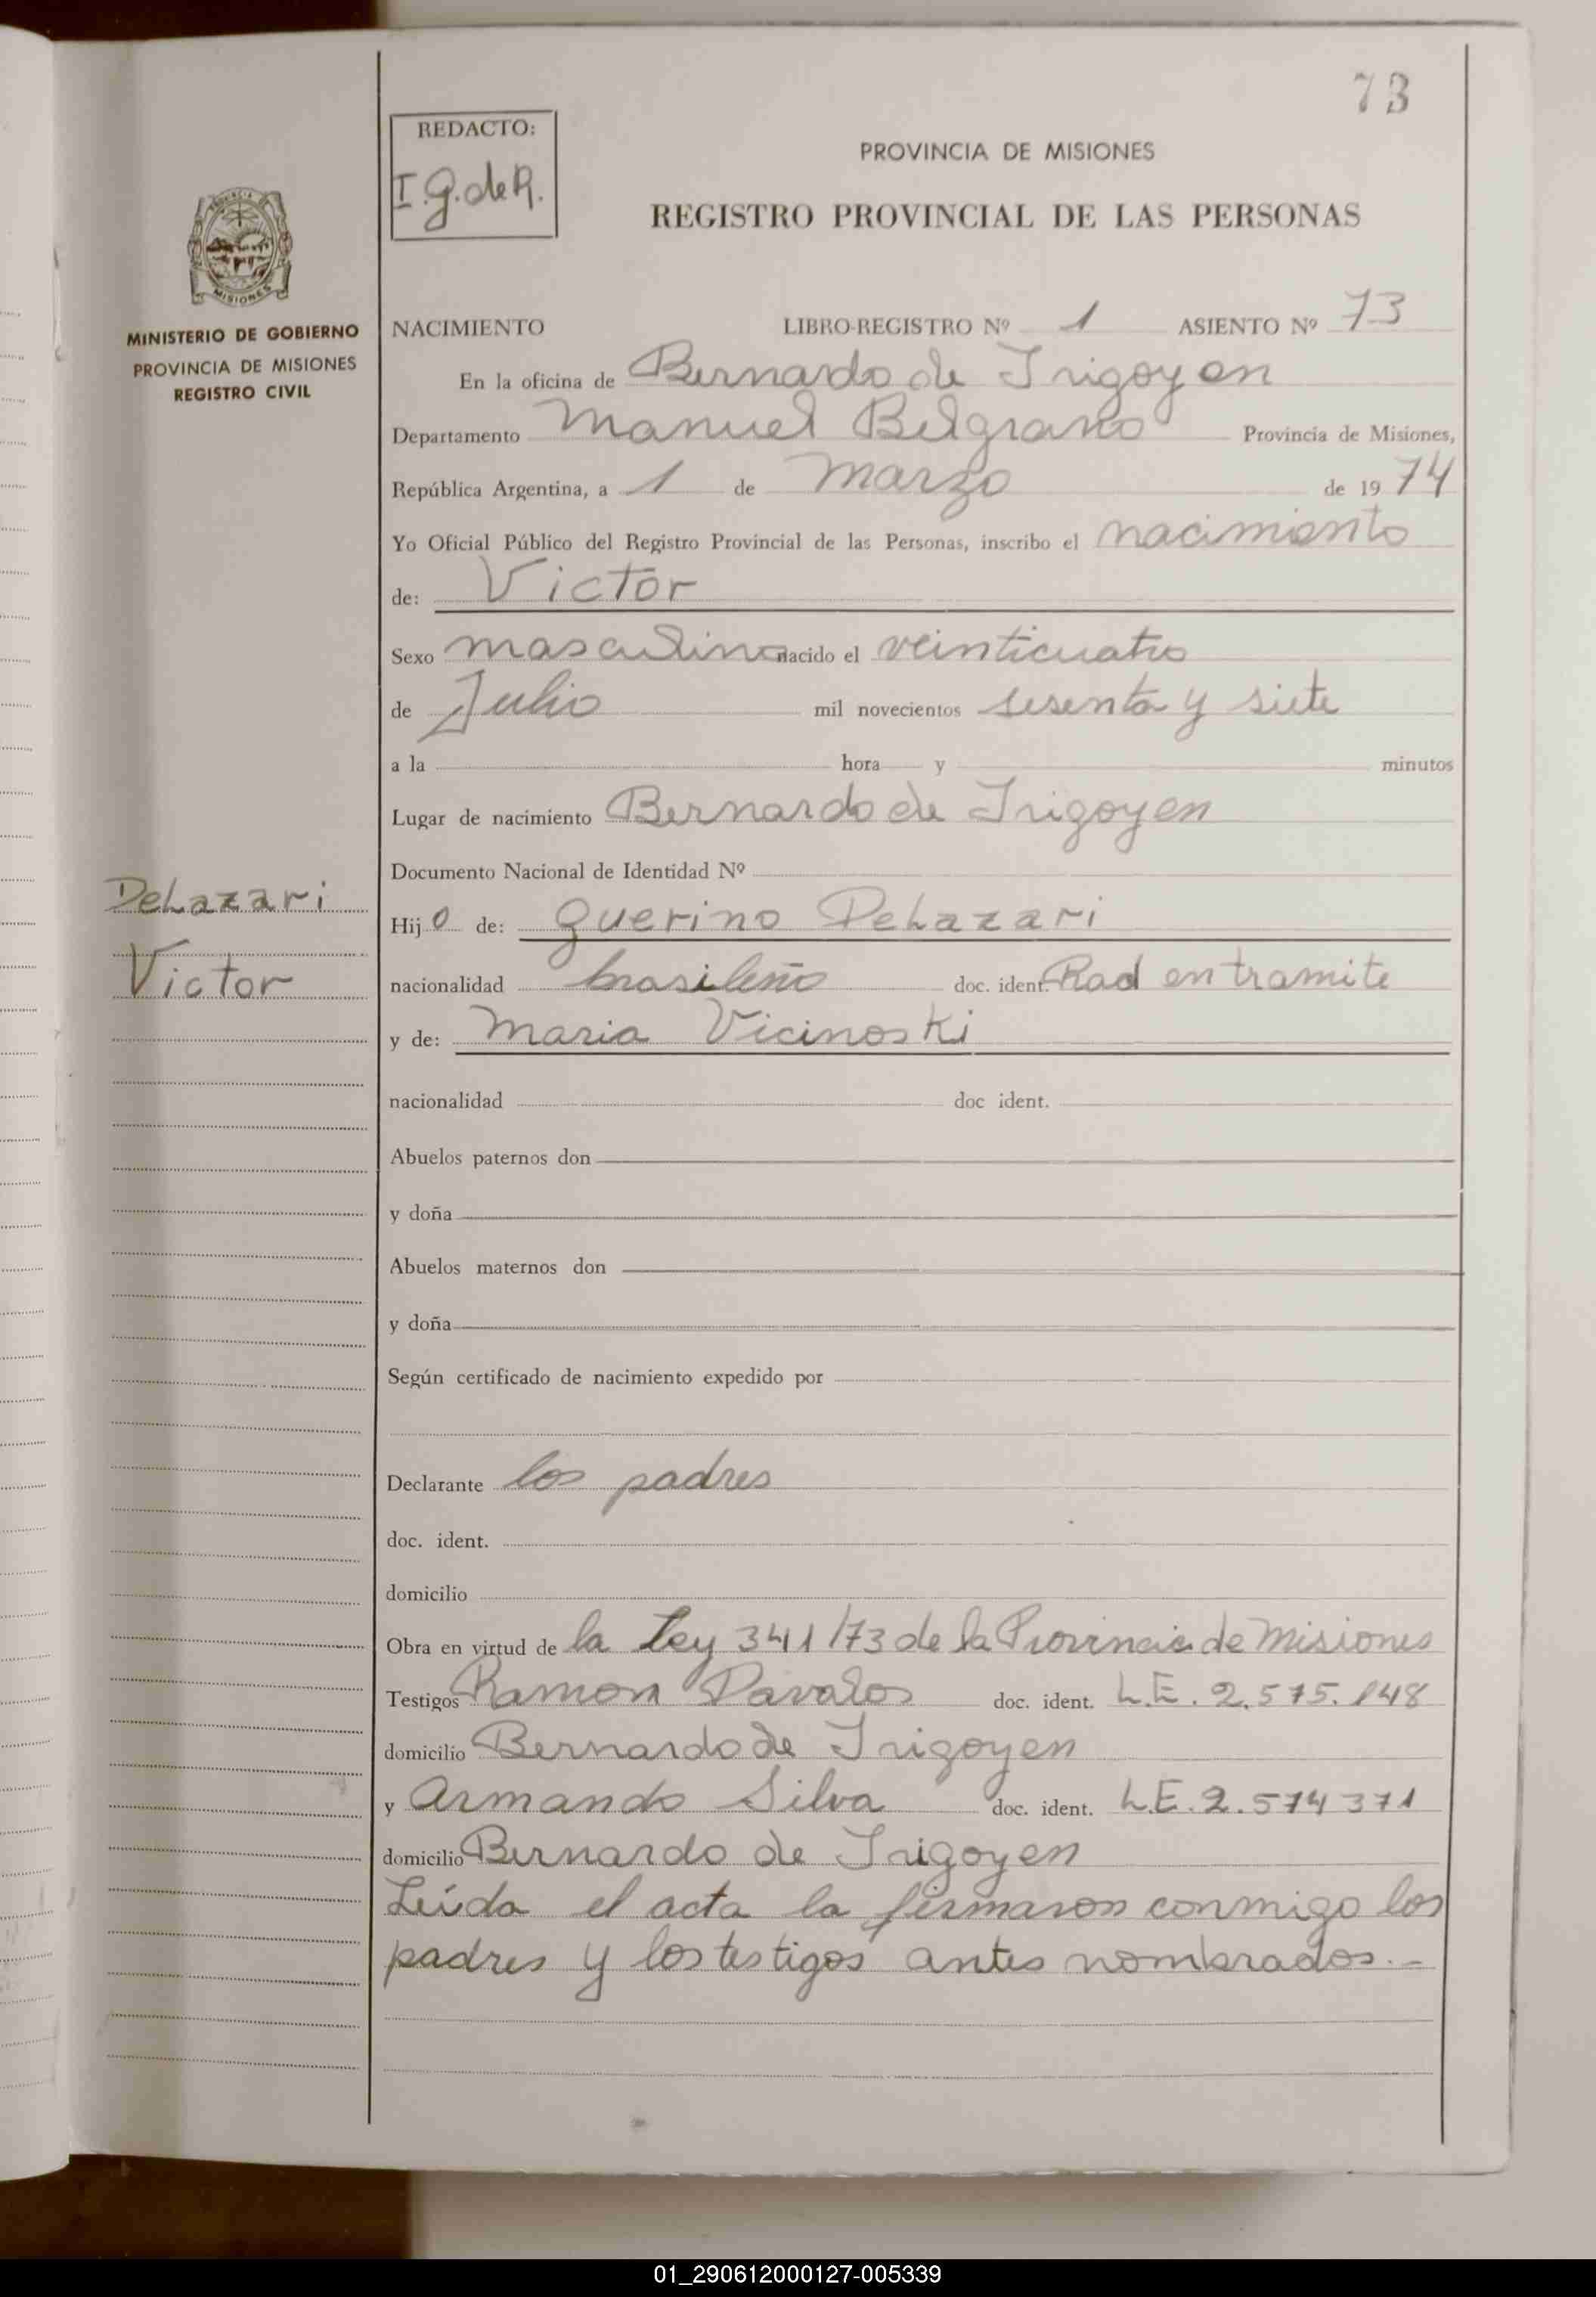 73
REDACTO:
I.G.de R.
PROVINCIA DE MISIONES
REGISTRO PROVINCIAL DE LAS PERSONAS
MISIONES
MINISTERIO DE GOBIERNO
PROVINCIA DE MISIONES
REGISTRO CIVIL
NACIMIENTO LIBRO-REGISTRO Nº 1 ASIENTO Nº 73
En la oficina de Bernardo de Irigoyen
Departamento Manuel Belgrano Provincia de Misiones,
República Argentina, a 1 de Marzo de 1974
Yo Oficial Público del Registro Provincial de las Personas, inscribo el nacimiento
de: Victor
Sexo masculino nacido el veinticuatro
de Julio mil novecientos sesenta y siete
a la hora y minutos
Lugar de nacimiento Bernardo de Irigoyen
Documento Nacional de Identidad Nº
DeLazari
Victor
Hijo de: Querino DeLazari
nacionalidad brasileño doc. ident. Rad en tramite
y de: Maria Vicinoski
nacionalidad doc ident.
Abuelos paternos don
y doña
Abuelos maternos don
y doña
Según certificado de nacimiento expedido por
Declarante los padres
doc. ident.
domicilio
Obra en virtud de la Ley 341/73 de la Provincia de Misiones
Testigos Ramon Davalos doc. ident. L.E. 2.575.148
domicilio Bernardo de Irigoyen
y Armando Silva doc. ident. L.E. 2.574371
domicilio Bernardo de Irigoyen
Leída el acta la firmaron conmigo los
padres y los testigos antes nombrados.-
01_290612000127-005339